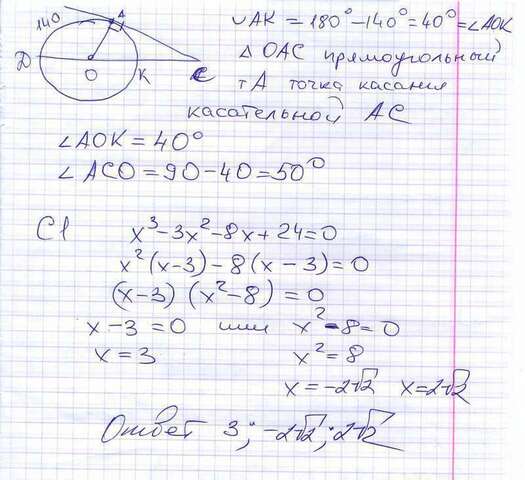 140
A
D
O
K
C
◡AK = 180° - 140° = 40° = ∠AOK
△ OAC прямоугольный
т A точка касания
касательной AC
∠AOK = 40°
∠ACO = 90 - 40 = 50°
C1 x³ - 3x² - 8x + 24 = 0
x²(x - 3) - 8(x - 3) = 0
(x - 3) (x² - 8) = 0
x - 3 = 0 или x² - 8 = 0
x = 3 x² = 8
x = -2√2 x = 2√2
Ответ 3; -2√2; 2√2